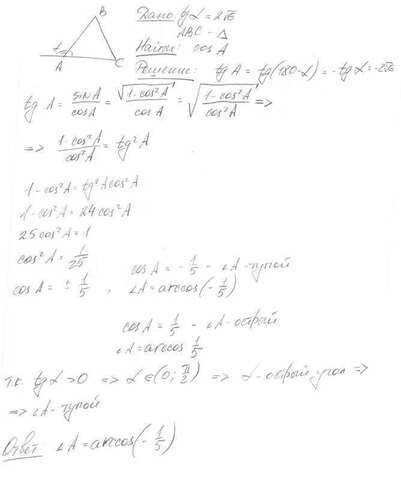 B
α
A
C
Дано: tg α = 2√6
ABC - Δ
Найти: cos A
Решение: tg A = tg(180-α) = -tg α = -2√6
tg A = sin A / cos A = √(1-cos²A) / cos A = √((1-cos²A) / cos²A) =>
=> (1-cos²A) / cos²A = tg²A
1-cos²A = tg²A cos²A
1-cos²A = 24cos²A
25cos²A = 1
cos²A = 1/25
cos A = ± 1/5 , cos A = -1/5 - ∠A - тупой
∠A = arccos(-1/5)
cos A = 1/5 - ∠A - острый
∠A = arccos 1/5
т.к. tg α > 0 => α ∈ (0; π/2) => α - острый угол =>
=> ∠A - тупой
Ответ: ∠A = arccos(-1/5)